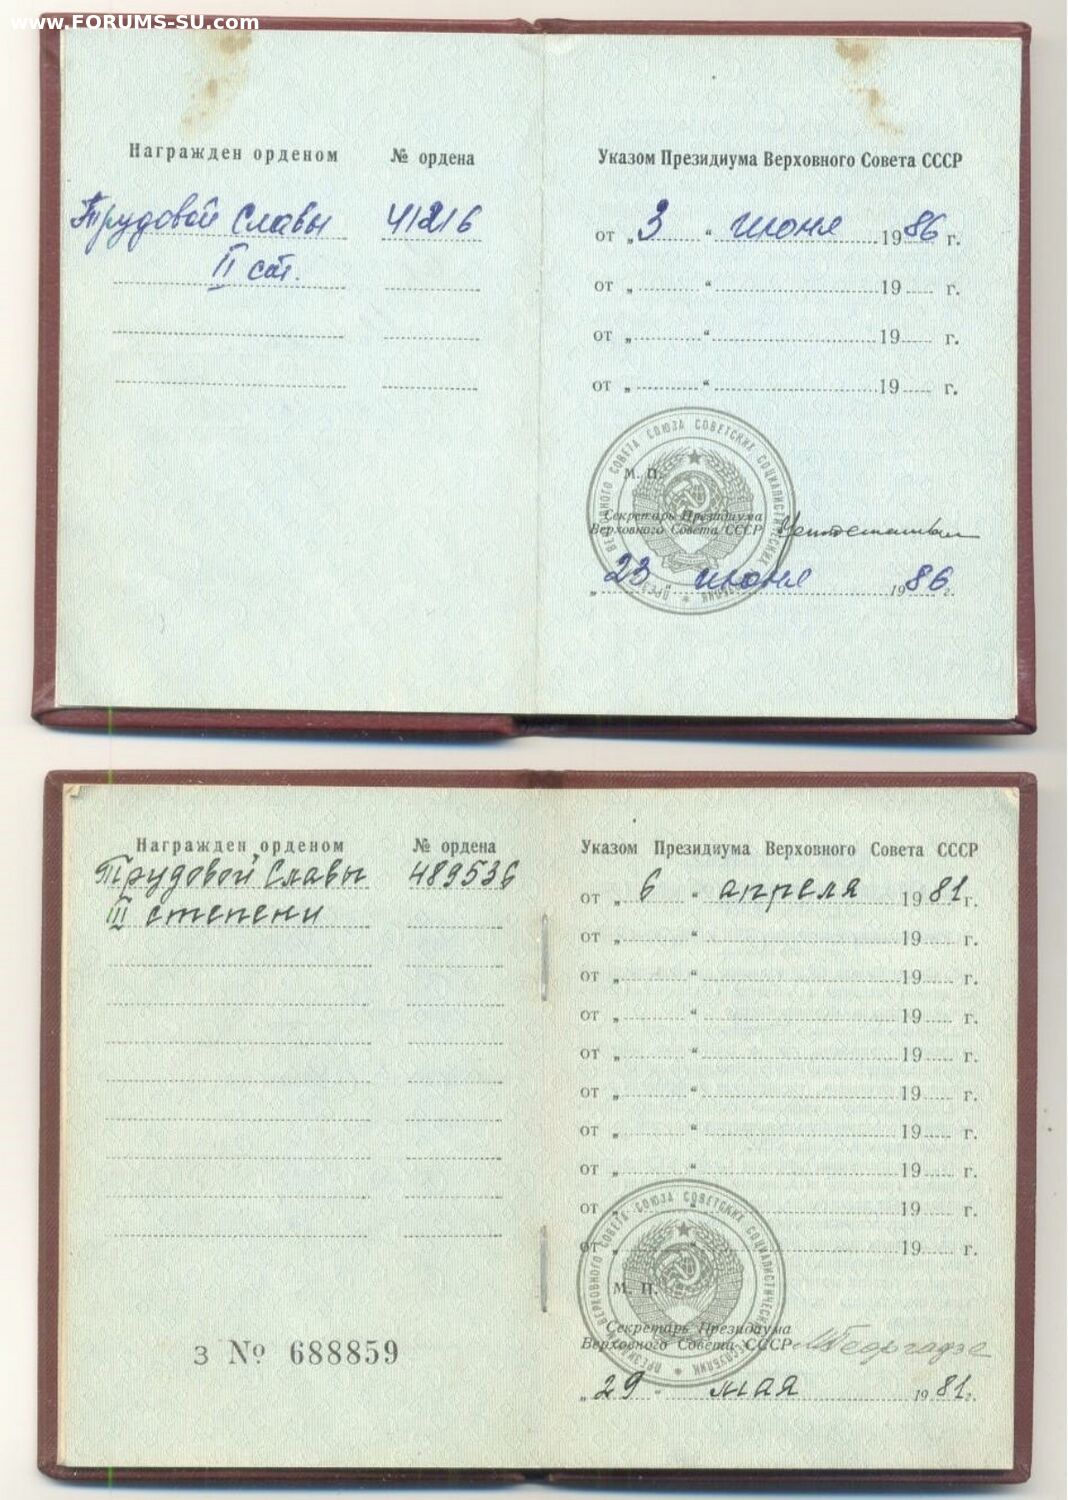 www.FORUMS-SU.com
Награжден орденом № ордена
Трудовой Славы 41216
II ст.
Указом Президиума Верховного Совета СССР
от „3“ июня 1986 г.
от „ “ 19 г.
от „ “ 19 г.
от „ “ 19 г.
ПРЕЗИДИУМ ВЕРХОВНОГО СОВЕТА СОЮЗА СОВЕТСКИХ СОЦИАЛИСТИЧЕСКИХ РЕСПУБЛИК
М. П.
Секретарь Президиума
Верховного Совета СССР
„23 „ июня 1986 г.
Награжден орденом № ордена
Трудовой Славы 489536
III степени
З № 688859
Указом Президиума Верховного Совета СССР
от „6“ апреля 1981 г.
от „ “ 19 г.
от „ “ 19 г.
от „ “ 19 г.
от „ “ 19 г.
от „ “ 19 г.
от „ “ 19 г.
от „ “ 19 г.
от „ “ 19 г.
от „ “ 19 г.
ПРЕЗИДИУМ ВЕРХОВНОГО СОВЕТА СОЮЗА СОВЕТСКИХ СОЦИАЛИСТИЧЕСКИХ РЕСПУБЛИК
М. П.
Секретарь Президиума
Верховного Совета СССР М Георгадзе
„29 “ мая 1981 г.